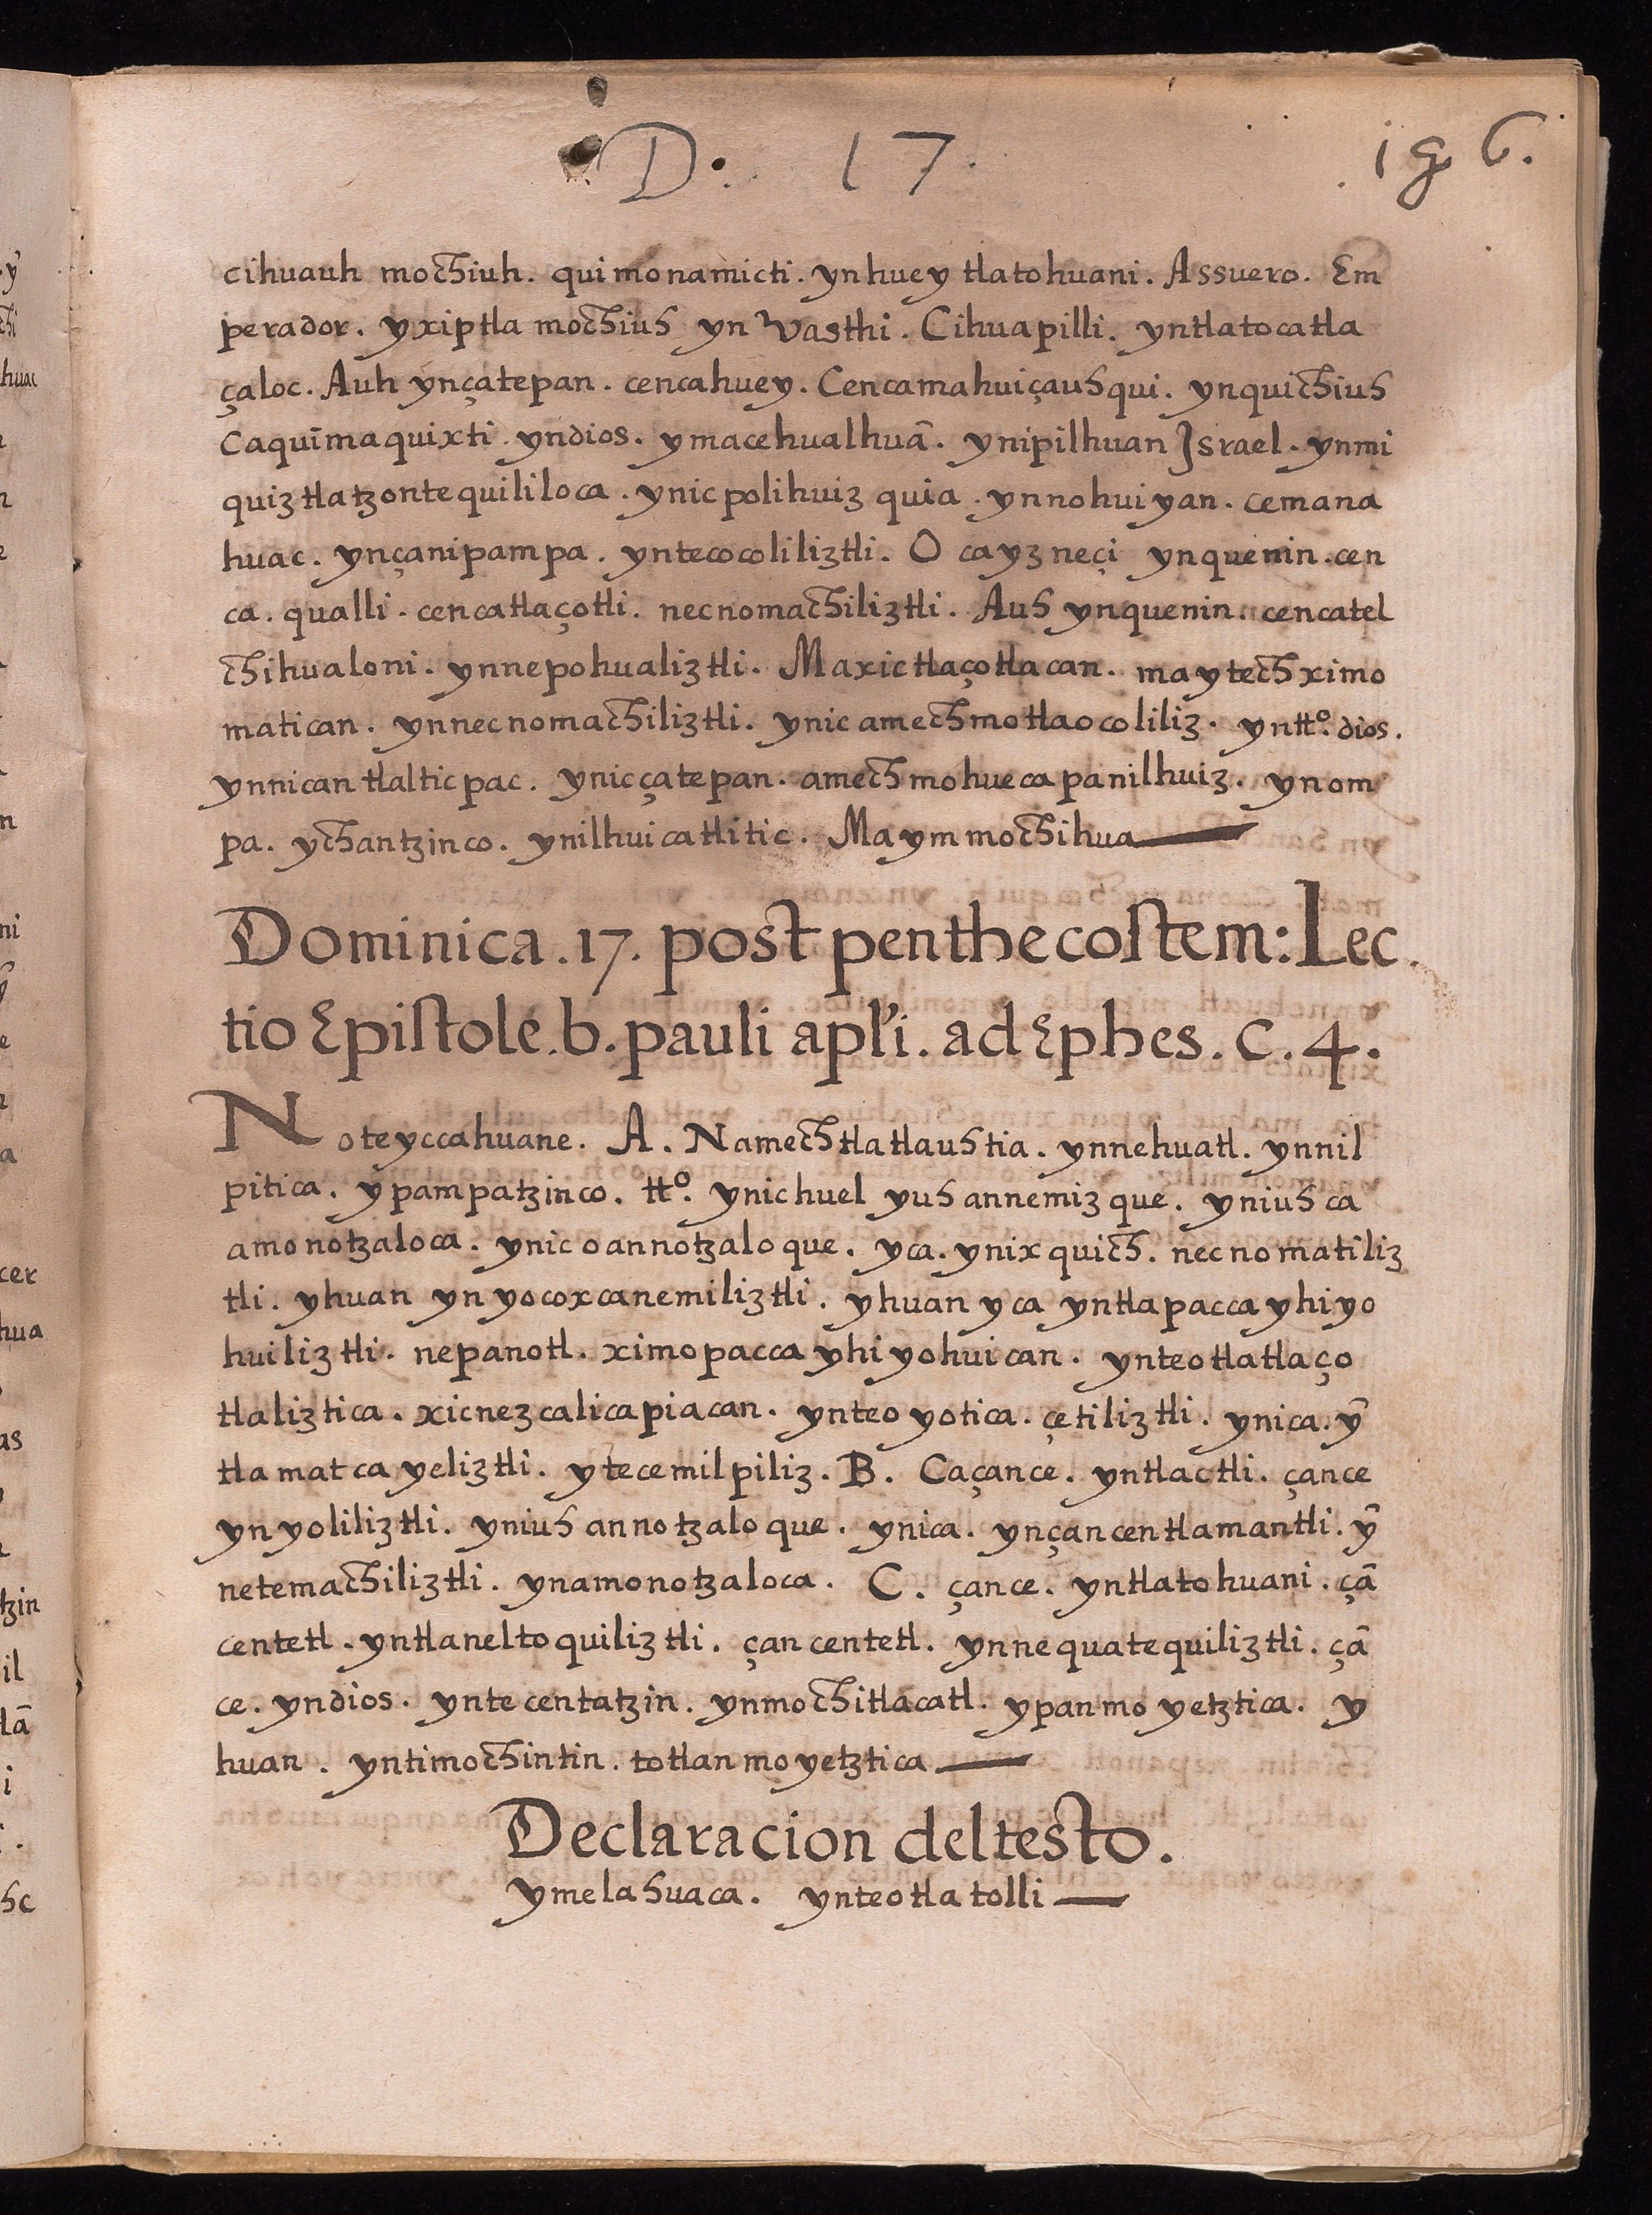 D. 17. 196.
cihuauh mochiuh. quimonamicti. ynhuey tlatohuani. Assuero. Em
perador. yxiptla mochiuh yn Vasthi. Cihuapilli. yntlatocatla
çaloc. Auh ynçatepan. cencahuey. Cencamahuiçauhqui. ynquichiuh
Caquīmaquixti. yndios. ymacehualhuā. ynipilhuan Israel. ynmi
quiztlatzontequililoca. ynic polihuiz quia. ynnohuiyan. cemana
huac. ynçanipampa. yntecocoliliztli. O cayz neçi ynquenin. cen
ca. qualli. cencatlaçotli. necnomachiliztli. Auh ynquenin. cencatel
chihualoni. ynnepohualiztli. Maxictlaçotlacan. maytech ximo
matican. ynnecnomachiliztli. ynic amechmotlaocoliliz. yntt.º dios.
ynnican tlalticpac. ynicçatepan. amechmohuecapanilhuiz. ynom
pa. ychantzinco. ynilhuicatlitic. Maymmochihua
Dominica. 17. post penthecostem: Lec.
tio Epistole. b. pauli apl'i. ad Ephes. C. 4.
Noteyccahuane. A. Namechtlatlauhtia. ynnehuatl. ynnil
pitica. ypampatzinco. tt.º ynichuel yuh annemizque. yniuh ca
amonotzaloca. ynic oannotzaloque. yca. ynixquich. necnomatiliz
tli. yhuan yn yocoxcanemiliztli. yhuan yca yntlapaccayhiyo
huiliztli. nepanotl. ximopaccayhiyohuican. ynteotlatlaço
tlaliztica. xicnezcalicapiacan. ynteoyotica. çetiliztli. ynica. ȳ
tlamatcayeliztli. ytecemilpiliz. B. Caçance. yntlactli. çance
ynyoliliztli. yniuh annotzaloque. ynica. ynçancentlamantli. ȳ
netemachiliztli. ynamonotzaloca. C. çance. yntlatohuani. çā
centetl. yntlaneltoquiliztli. çan centetl. ynnequatequiliztli. çā
ce. yndios. yntecentatzin. ynmochitlacatl. ypanmoyetztica. y
huan. yntimochintin. totlanmoyetztica
Declaracion deltesto.
ymelahuaca. ynteotlatolli